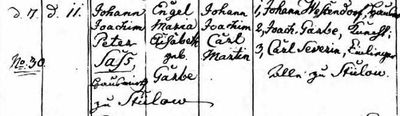 d. 7. d. 11. Johann Engel Johann 1, Johann Westendorf,
Joachim Maria Joachim 2, Joach. Garbe,
Peter Elisabeth Carl 3, Carl Severin, Einlieger
Sass, geb. Martin
No. 30. Garbe zu Stülow.
zu Stülow